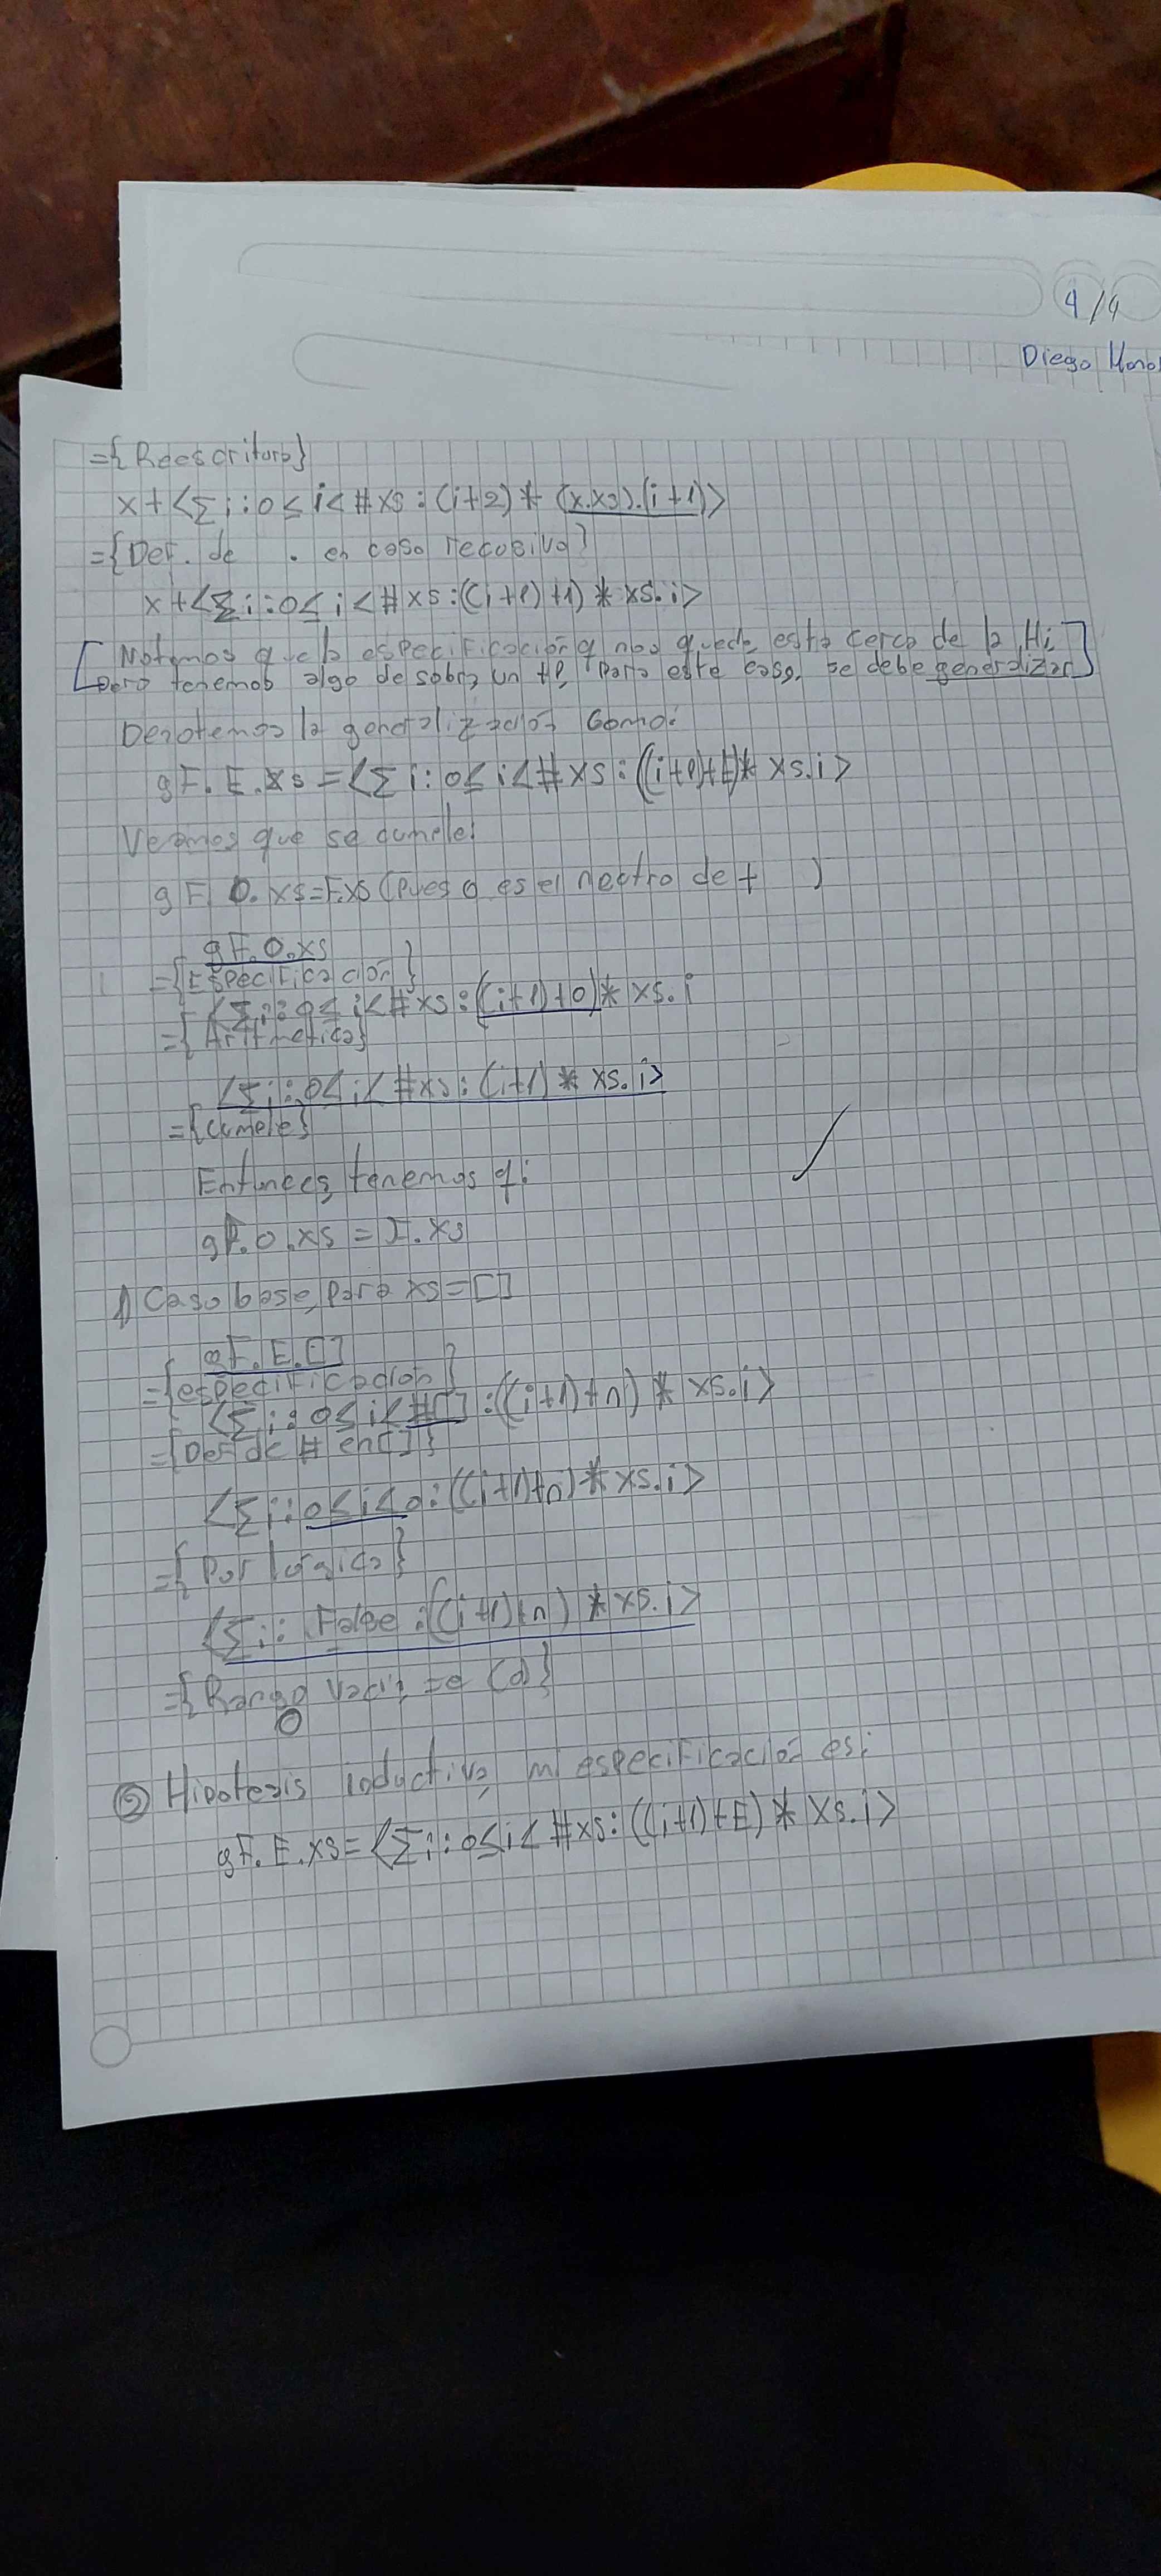 4/4
Diego
={Reescritura}
x+<∑i:0≤i<#xs:(i+2)*(x.xs).(i+1)>
={Def. de . en caso recusivo}
x+<∑i:0≤i<#xs:((i+1)+1)*xs.i>
[Notemos que la especificación q nos quede esta cerca de la Hi,
pero tenemos algo de sobra, un +1, para este caso, se debe generalizar]
Denotemos la generalización como:
gF.E.xs=<∑i:0≤i<#xs:((i+1)+E)*xs.i>
Veamos que se cumple:
gF.0.xs=F.xs (pues 0 es el neutro de + )
gF.0.xs
={Especificación}
<∑i:0≤i<#xs:((i+1)+0)*xs.i
={Aritmetica}
<∑i:0≤i<#xs:(i+1)*xs.i>
={Cumple}
Entonces, tenemos q:
gF.0.xs=F.xs
1) Caso base, para xs=[]
gF.E.[]
={especificación}
<∑i:0≤i<#[]:((i+1)+n)*xs.i>
={Def de # en []}
<∑i:0≤i<0:((i+1)+n)*xs.i>
={Por logica}
<∑i:False:((i+1)+n)*xs.i>
={Rango vacio
0
② Hipotesis inductiva, mi especificación es:
gF.E.xs=<∑i:0≤i<#xs:((i+1)+E)*xs.i>